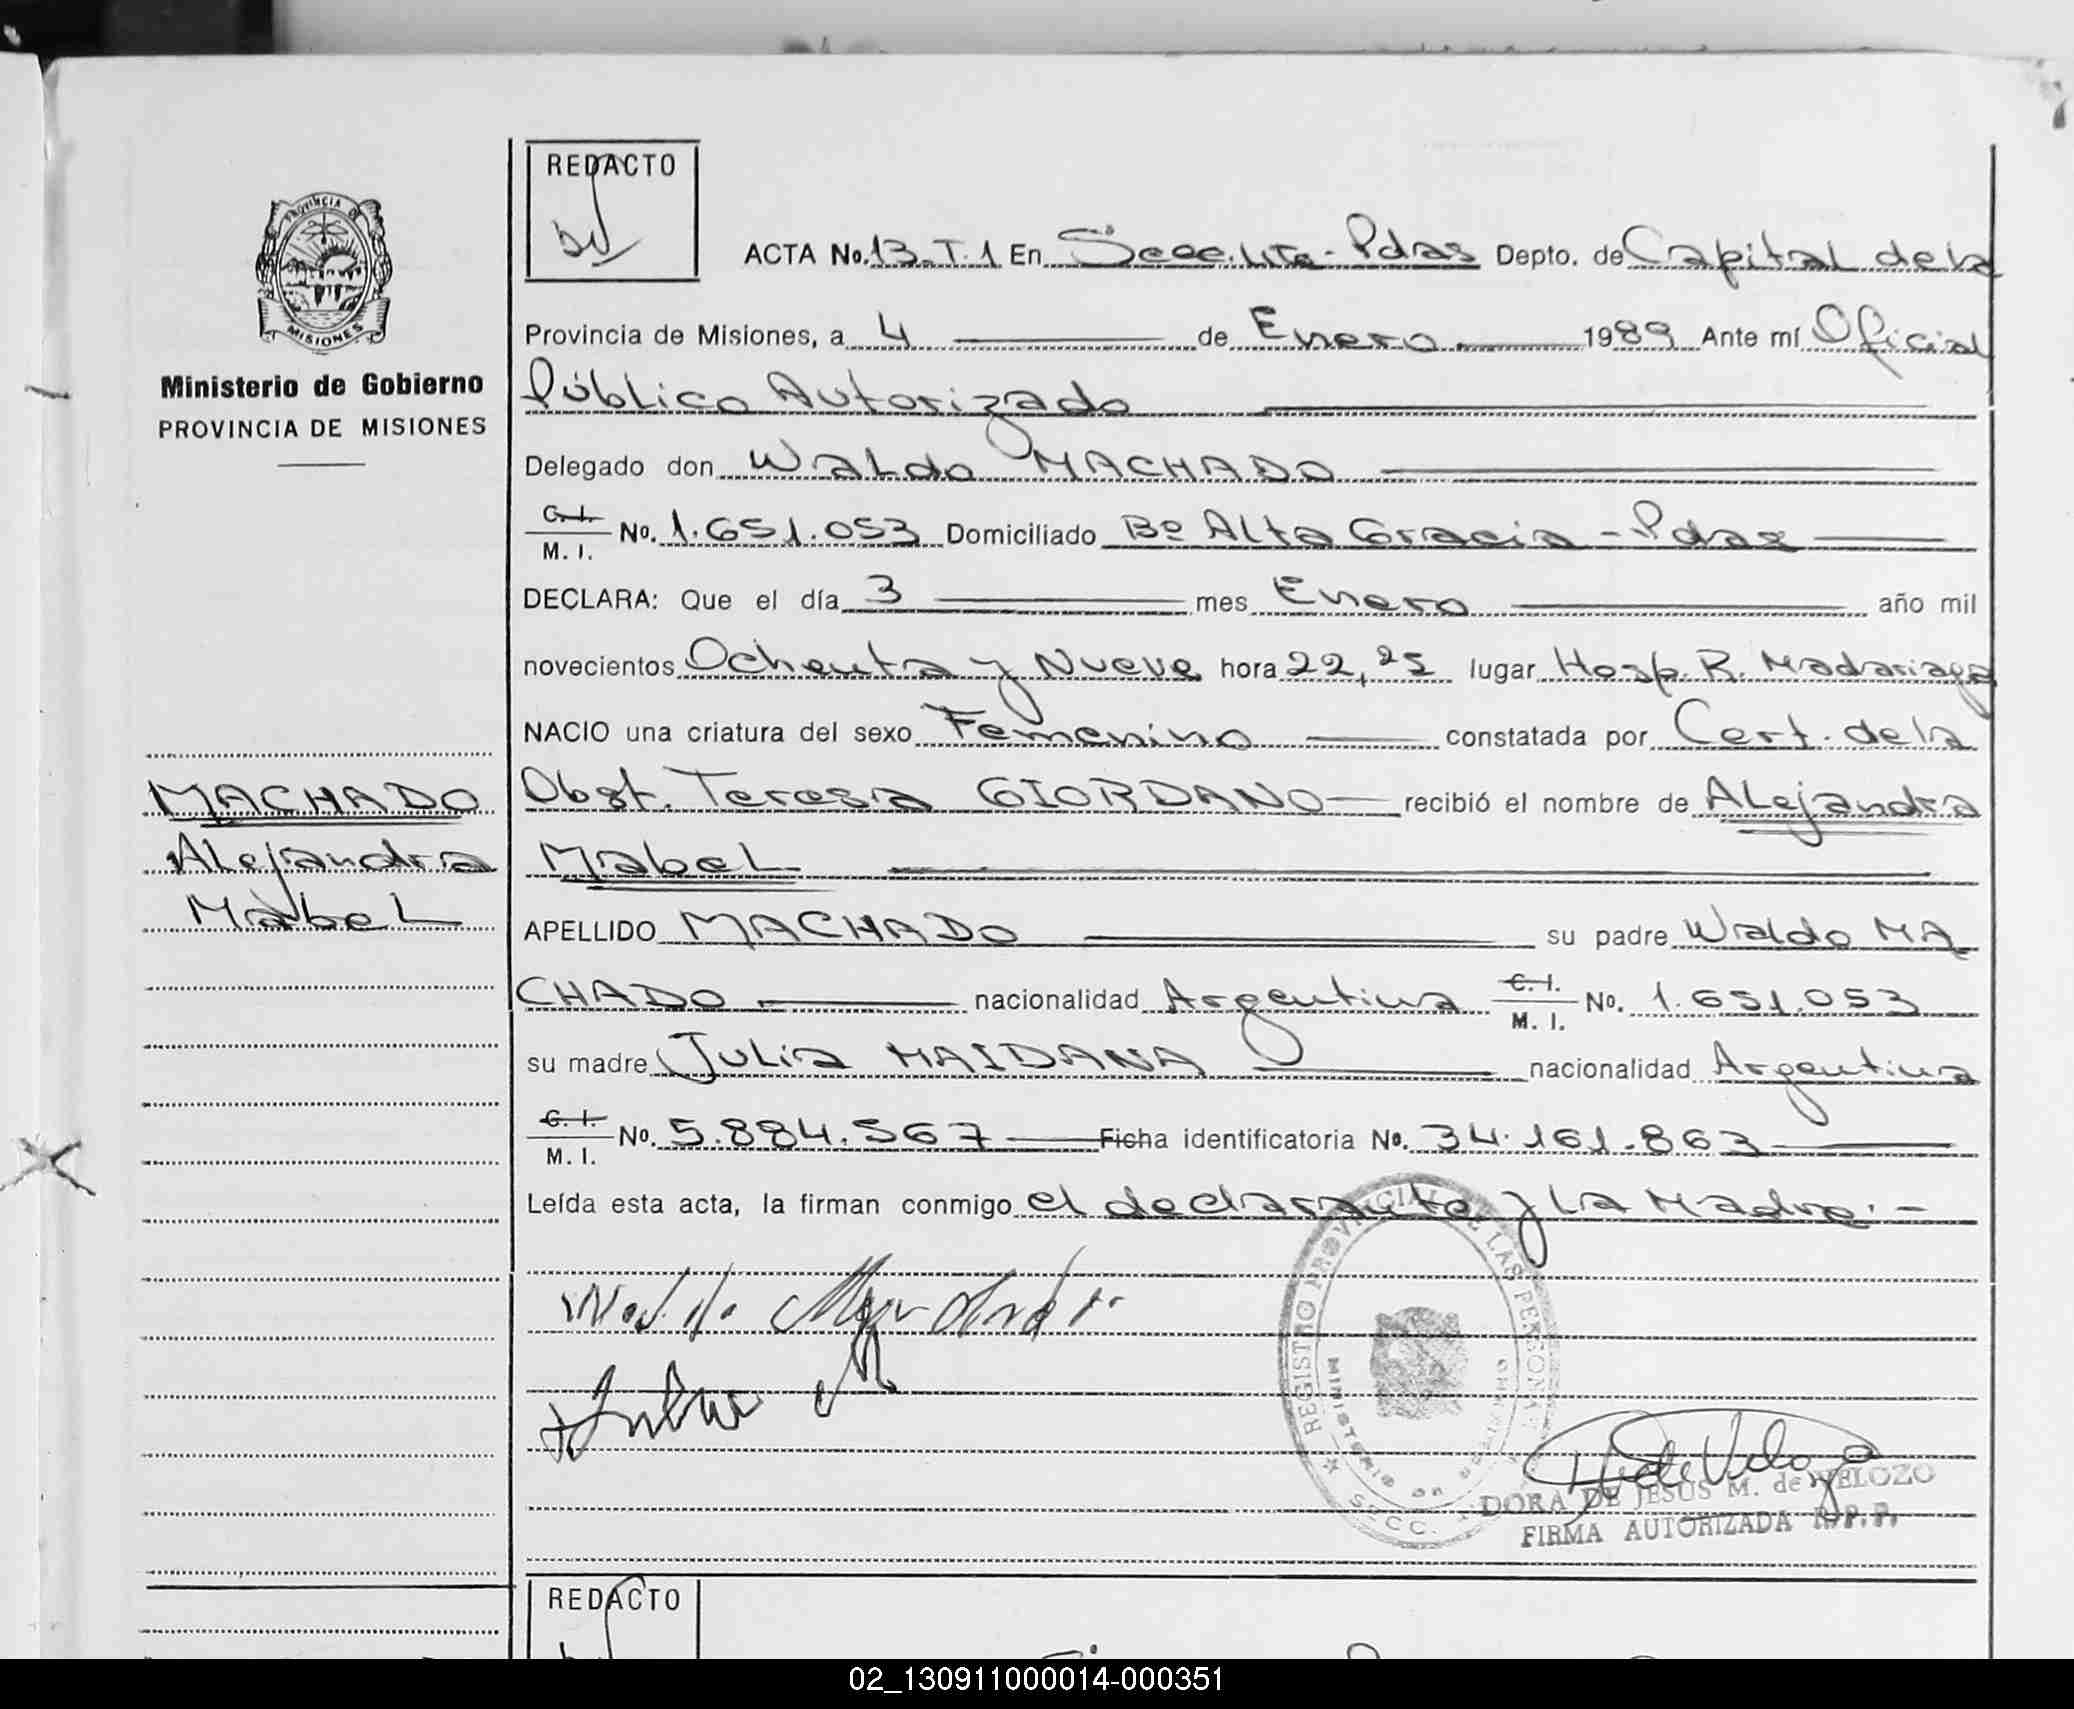 REDACTO
ACTA No. 13-T.1 En Secc. 4ta - Pdas Depto. de Capital de la
Provincia de Misiones, a 4 de Enero 1989 Ante mí Oficial
Público Autorizado
Delegado don Waldo MACHADO
C. I. M. I. No. 1.651.053 Domiciliado Bº Alta Gracia - Pdas
DECLARA: Que el día 3 mes Enero año mil
novecientos Ochenta y Nueve hora 22,25 lugar Hosp. R. Madariaga
NACIO una criatura del sexo Femenino constatada por Cert. de la
Obst. Teresa GIORDANO recibió el nombre de Alejandra
Mabel
APELLIDO MACHADO su padre Waldo MA
CHADO nacionalidad Argentina C. I. M. I. No. 1.651.053
su madre Julia MAIDANA nacionalidad Argentina
C. I. M. I. No. 5.884.567 Ficha identificatoria No. 34.161.863
Leída esta acta, la firman conmigo el declarante y la Madre.-
PROVINCIA DE
MISIONES
Ministerio de Gobierno
PROVINCIA DE MISIONES
MACHADO
Alejandra
Mabel
REGISTRO PROVINCIAL DE LAS PERSONAS
MINISTERIO DE GOBIERNO
SECC.
DORA DE JESUS M. de VELOZO
FIRMA AUTORIZADA R.P.P.
REDACTO
02_130911000014-000351